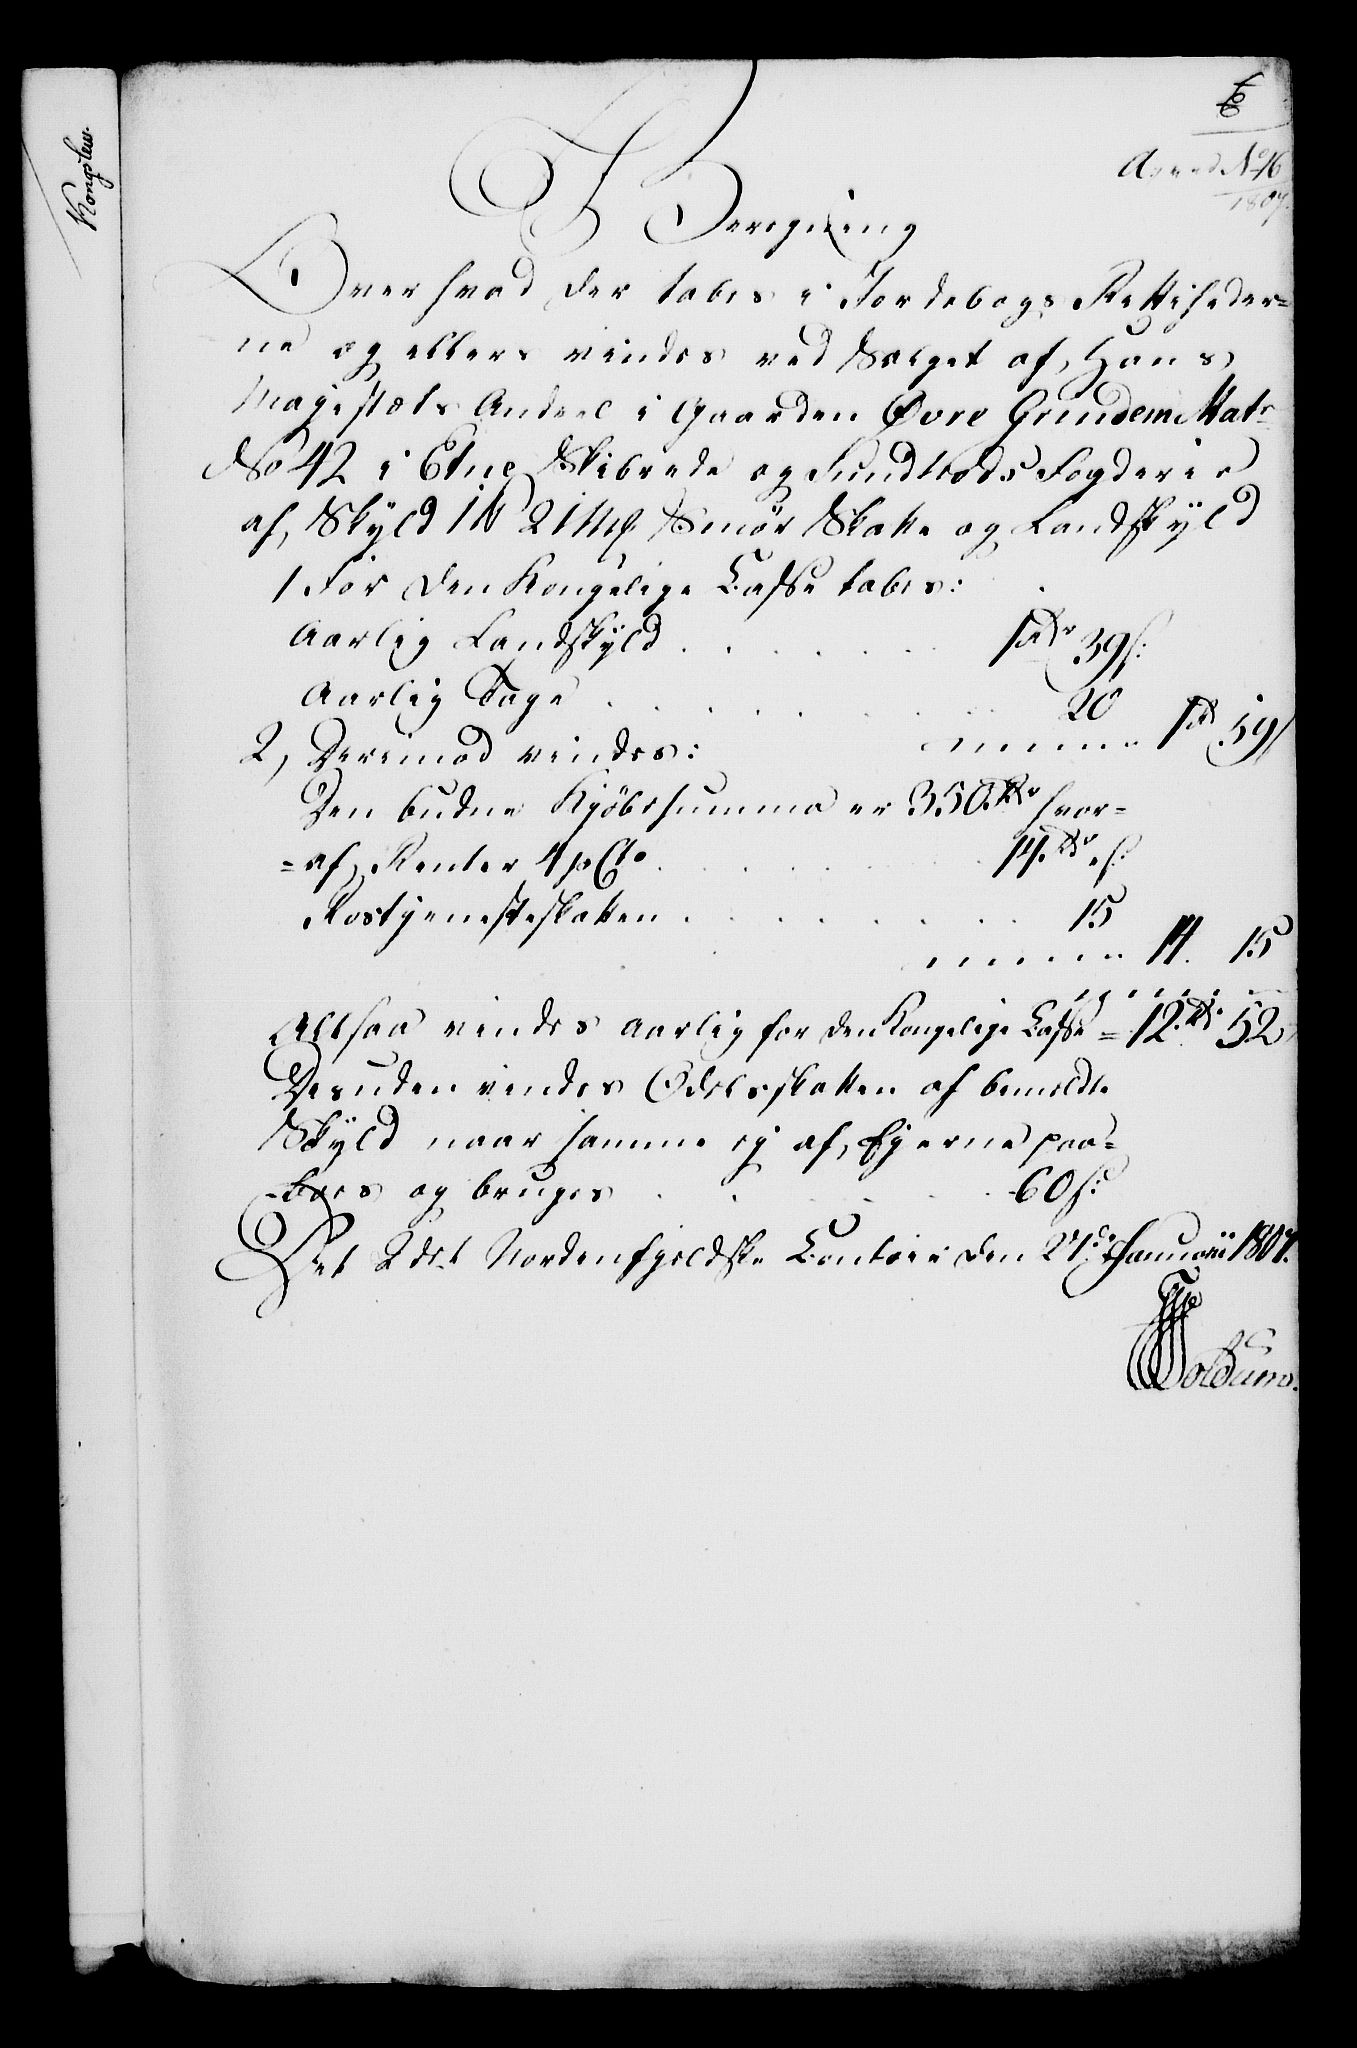 6
No 16
1807.
Kongslew.
Beregning
Over hvad der tabes i Jordebogs Rettigheder=
ne og ellers vindes ved Salget af Hans
Majestæts Andeel i Gaarden Øvre Grindem Matr
No 42 i Etne Skibrede og Sundhords Fogderie
af Skyld 1 21 Mrk Smør Skatte og Landskyld
1 For den Kongelige Casse tabes:
Aarlig Landskyld . . . . . . 1 rdr 39 s:
Aarlig Tage . . . . . . . . 20
1 rd 59 s
2, Derimod vindes:
Den budne Kjöbesumma er 350 rdr hvor=
=af Renter 4 p Cto . . . . . . 14 rdr . s:
Rostjenesteskatten . . . . . . 15
14. 15
Altsaa vindes aarlig for den Kongelige Casse = 12 rdr 52
Desuden vindes Odelsskatten af bemeldte
Skyld naar samme ej af Ejerne paa=
=boes og bruges . . . . . 60 s:
Det 2det Nordenfjeldske Contoir den 27de Januarii 1807.